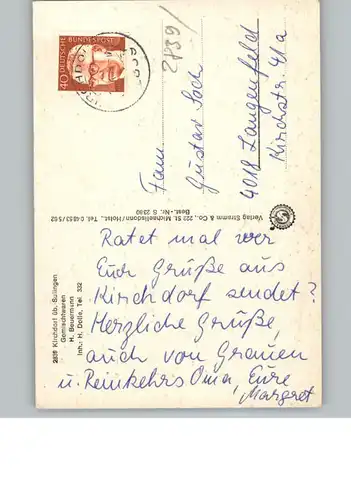 DEUTSCHE BUNDESPOST
40
2839/
Fam.
Gustav Soch
4018 Langenfeld
Kirchstr. 41a
Verlag Stramm & Co., 222 St. Michaelisdonn/Holst., Tel. 04853/562
Best.-Nr. S 2390
2839 Kirchdorf üb. Sulingen
Gemischtwaren
H. Beuermann
Inh.: H. Dolle, Tel. 332
Ratet mal wer
Euch Grüße aus
Kirchdorf sendet?
Herzliche Grüße,
auch von
u. Reinkehrs Oma, Eure
Margret